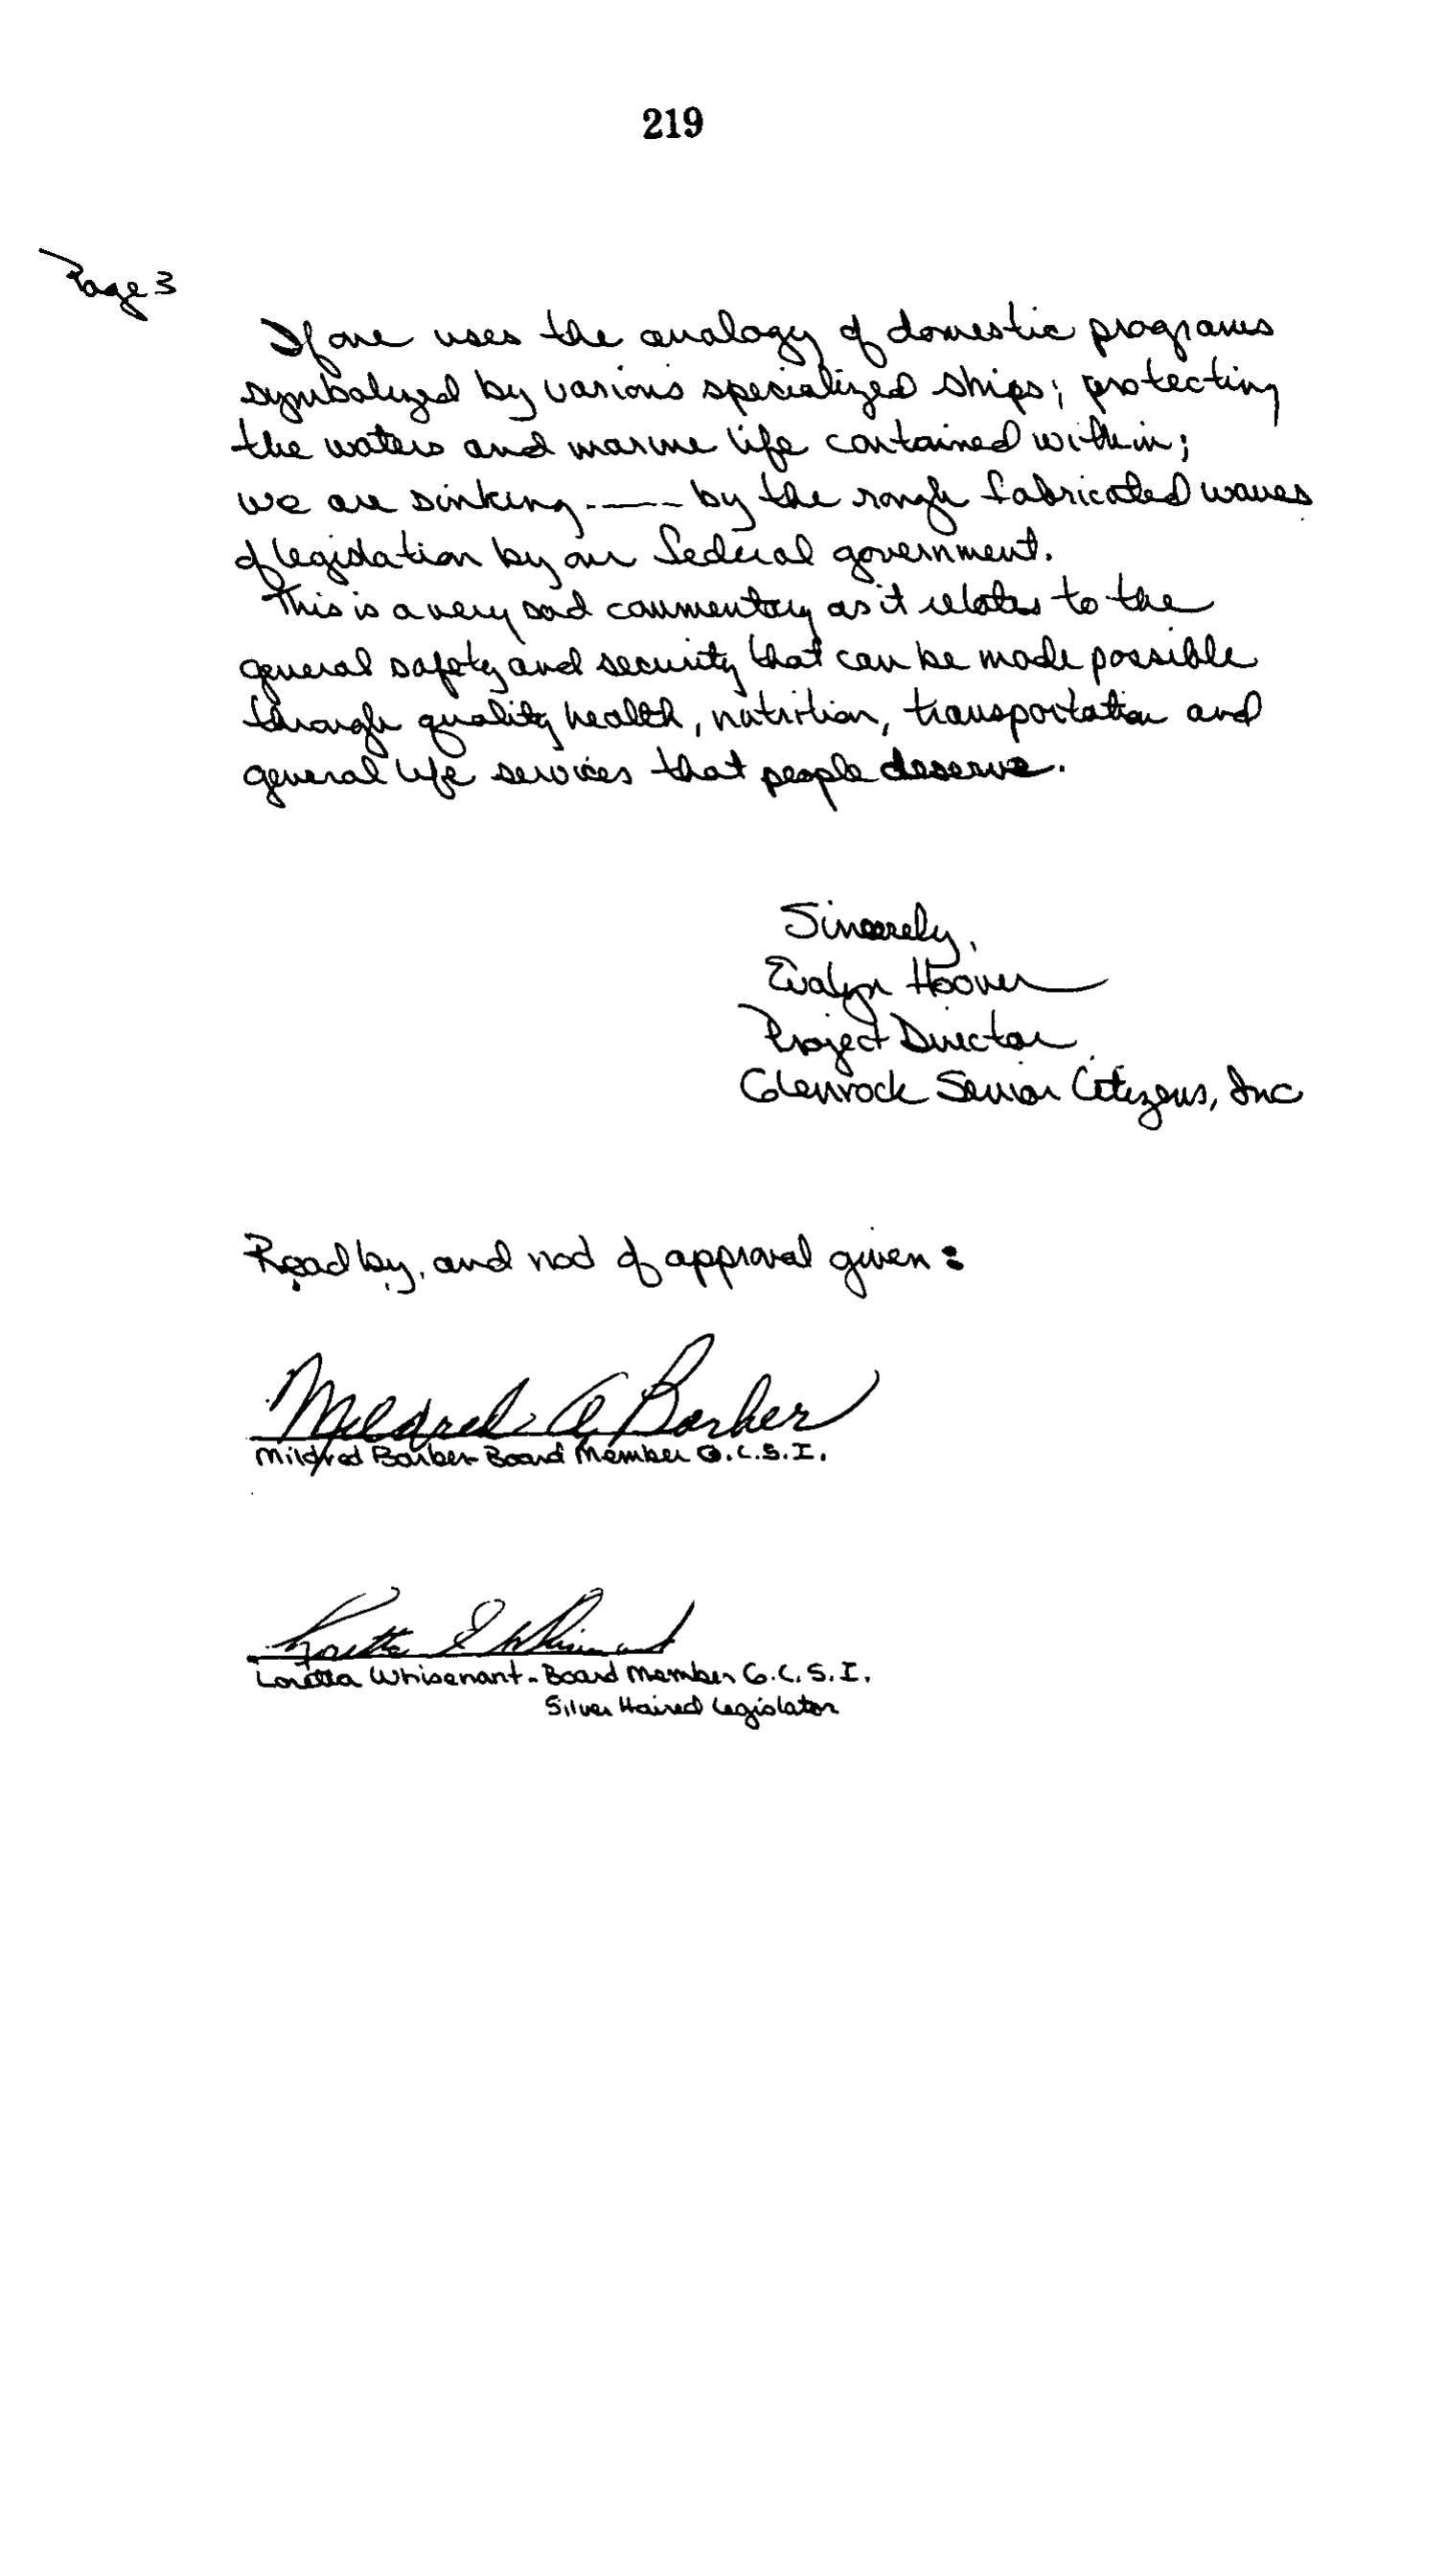 219
Page 3
If one uses the analogy of domestic programs
symbolized by various specialized ships; protecting
the waters and marine life contained within;
we are sinking ---- by the rough fabricated waves
of legislation by our federal government.
This is a very sad commentary as it relates to the
general safety and security that can be made possible
through quality health, nutrition, transportation and
general life services that people deserve.
Sincerely,
Evalyn Hoover
Project Director
Glenrock Senior Citizens, Inc
Read by, and nod of approval given:
Mildred A Barber
Mildred Barber - Board Member G.C.S.I.
Loretta E Whisenant
Loretta Whisenant - Board Member G.C.S.I.
Silver Haired Legislator